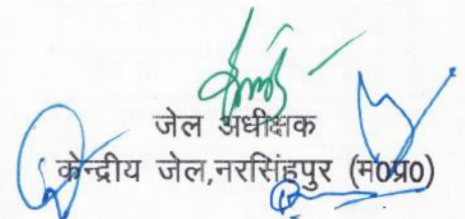 जेल अधीक्षक
केन्द्रीय जेल,नरसिंहपुर (म0प्र0)